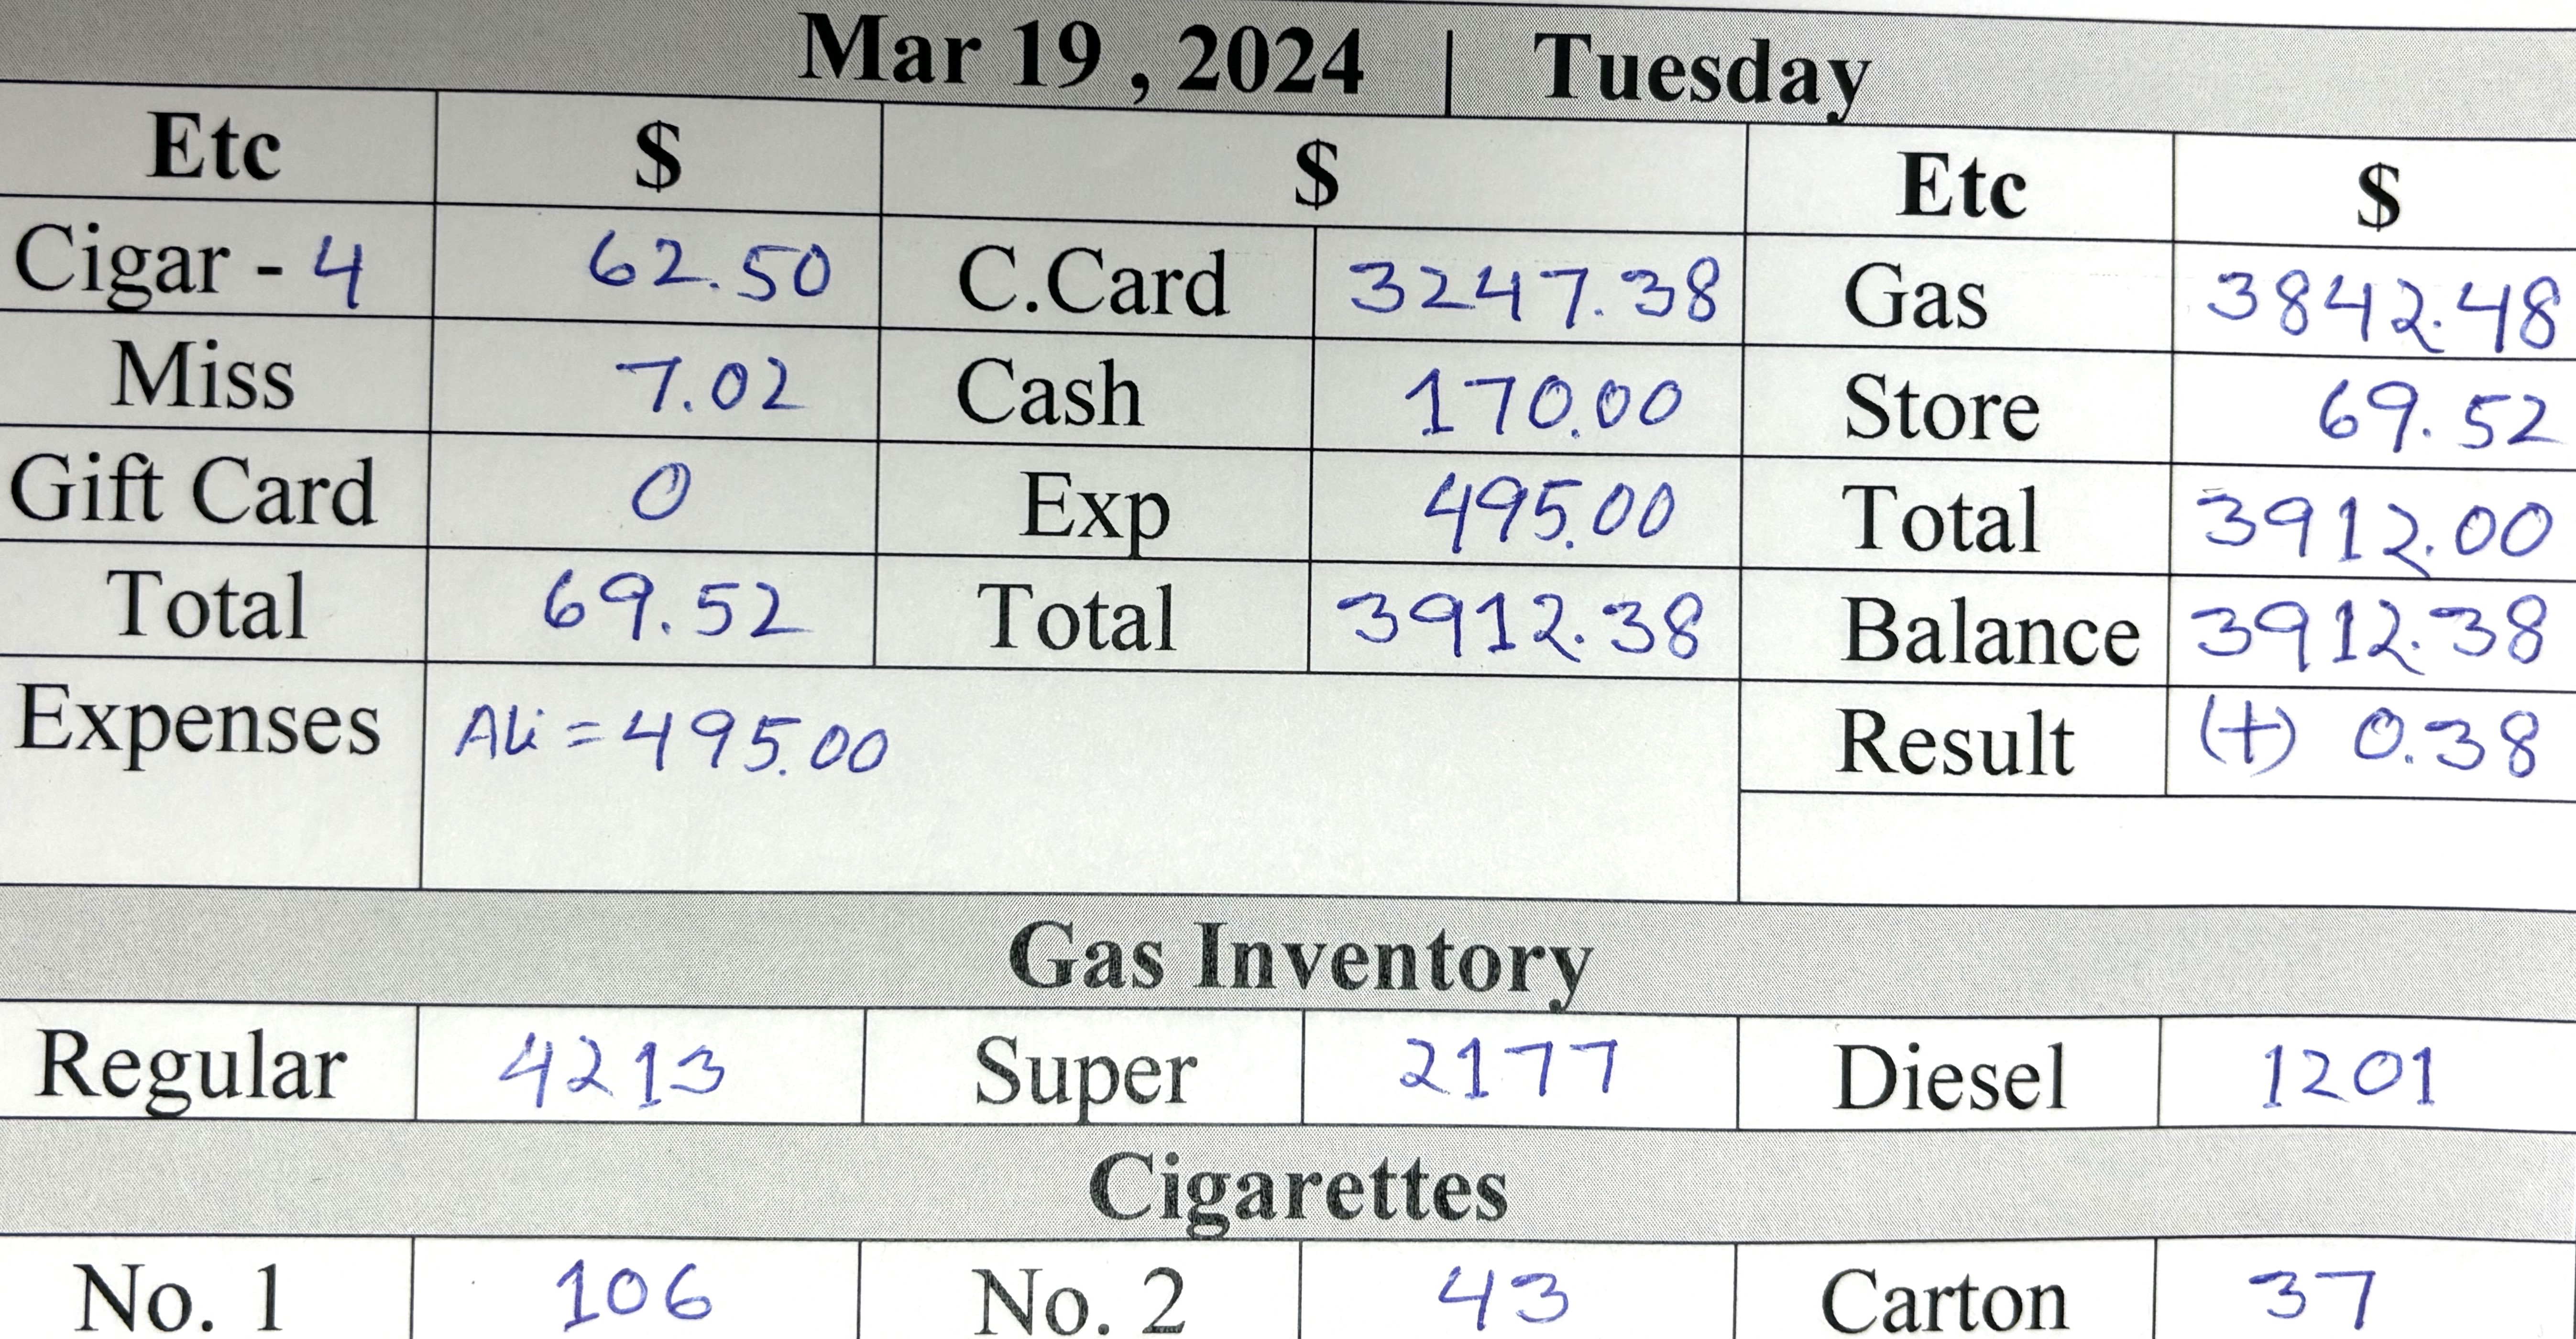 Mar 19 , 2024 | Tuesday
Etc $ $ Etc $
Cigar - 4 62.50 C.Card 3247.38 Gas 3842.48
Miss 7.02 Cash 170.00 Store 69.52
Gift Card 0 Exp 495.00 Total 3912.00
Total 69.52 Total 3912.38 Balance 3912.38
Expenses Ali = 495.00 Result (+) 0.38
Gas Inventory
Regular 4213 Super 2177 Diesel 1201
Cigarettes
No. 1 106 No. 2 43 Carton 37